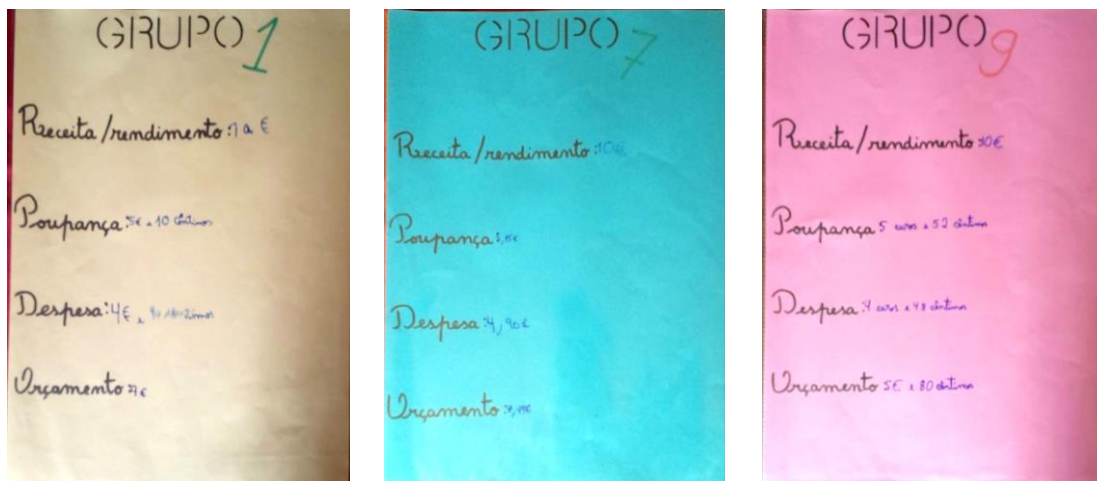 GRUPO 1
Receita/rendimento: €
Poupança: 5€ e 10 cêntimos
Despesa: 4€ e
Orçamento €
GRUPO 7
Receita/rendimento: 10€
Poupança:
Despesa: 4,90€
Orçamento:
GRUPO 9
Receita/rendimento: 10€
Poupança 5 euros e 52 cêntimos
Despesa: 4 euros e 48 cêntimos
Orçamento 5€ e 80 cêntimos